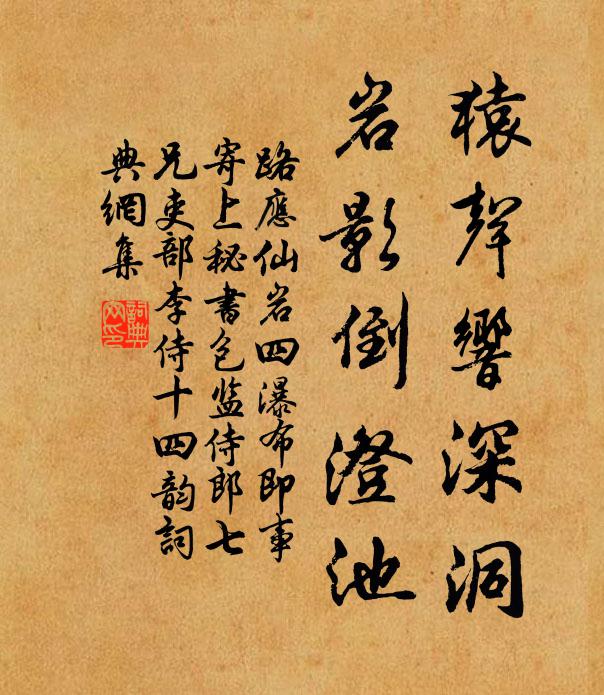 猿聲響深洞
岩影倒澄池
路應仙岩四瀑布即事
寄上秘書包監侍郎七
兄吏部李侍十四韵詞
典網集
詞典
网印